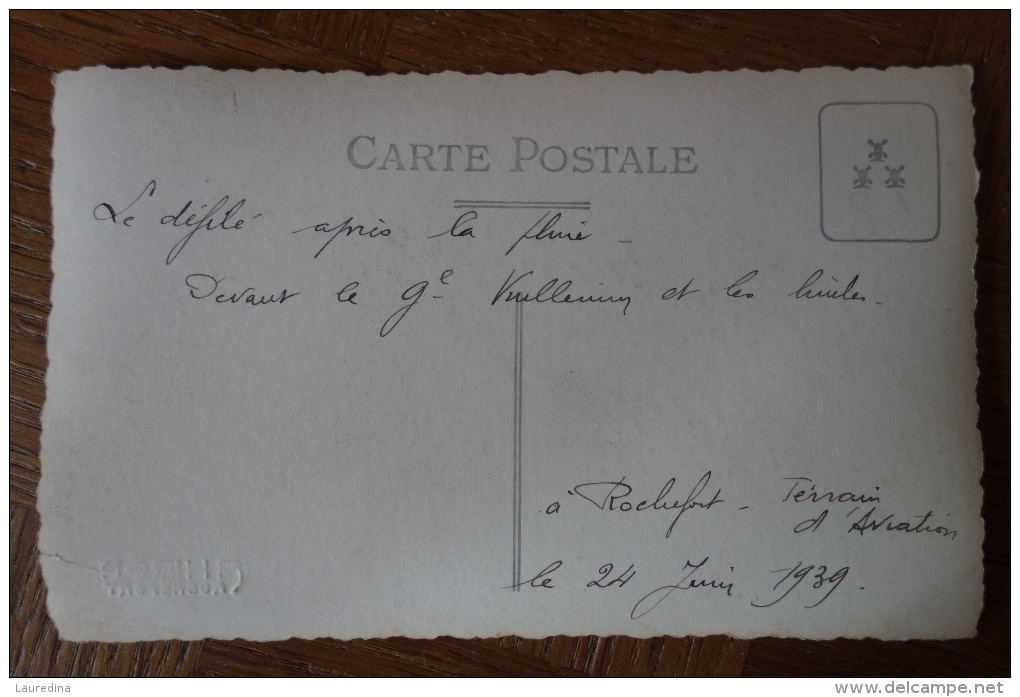 CARTE POSTALE
Le défilé après la pluie -
Devant le Gᵉ Vuillemin et les huiles -
à Rochefort - Térrain
d'Aviation
le 24 Juin 1939.
Lauredina
www.delcampe.net